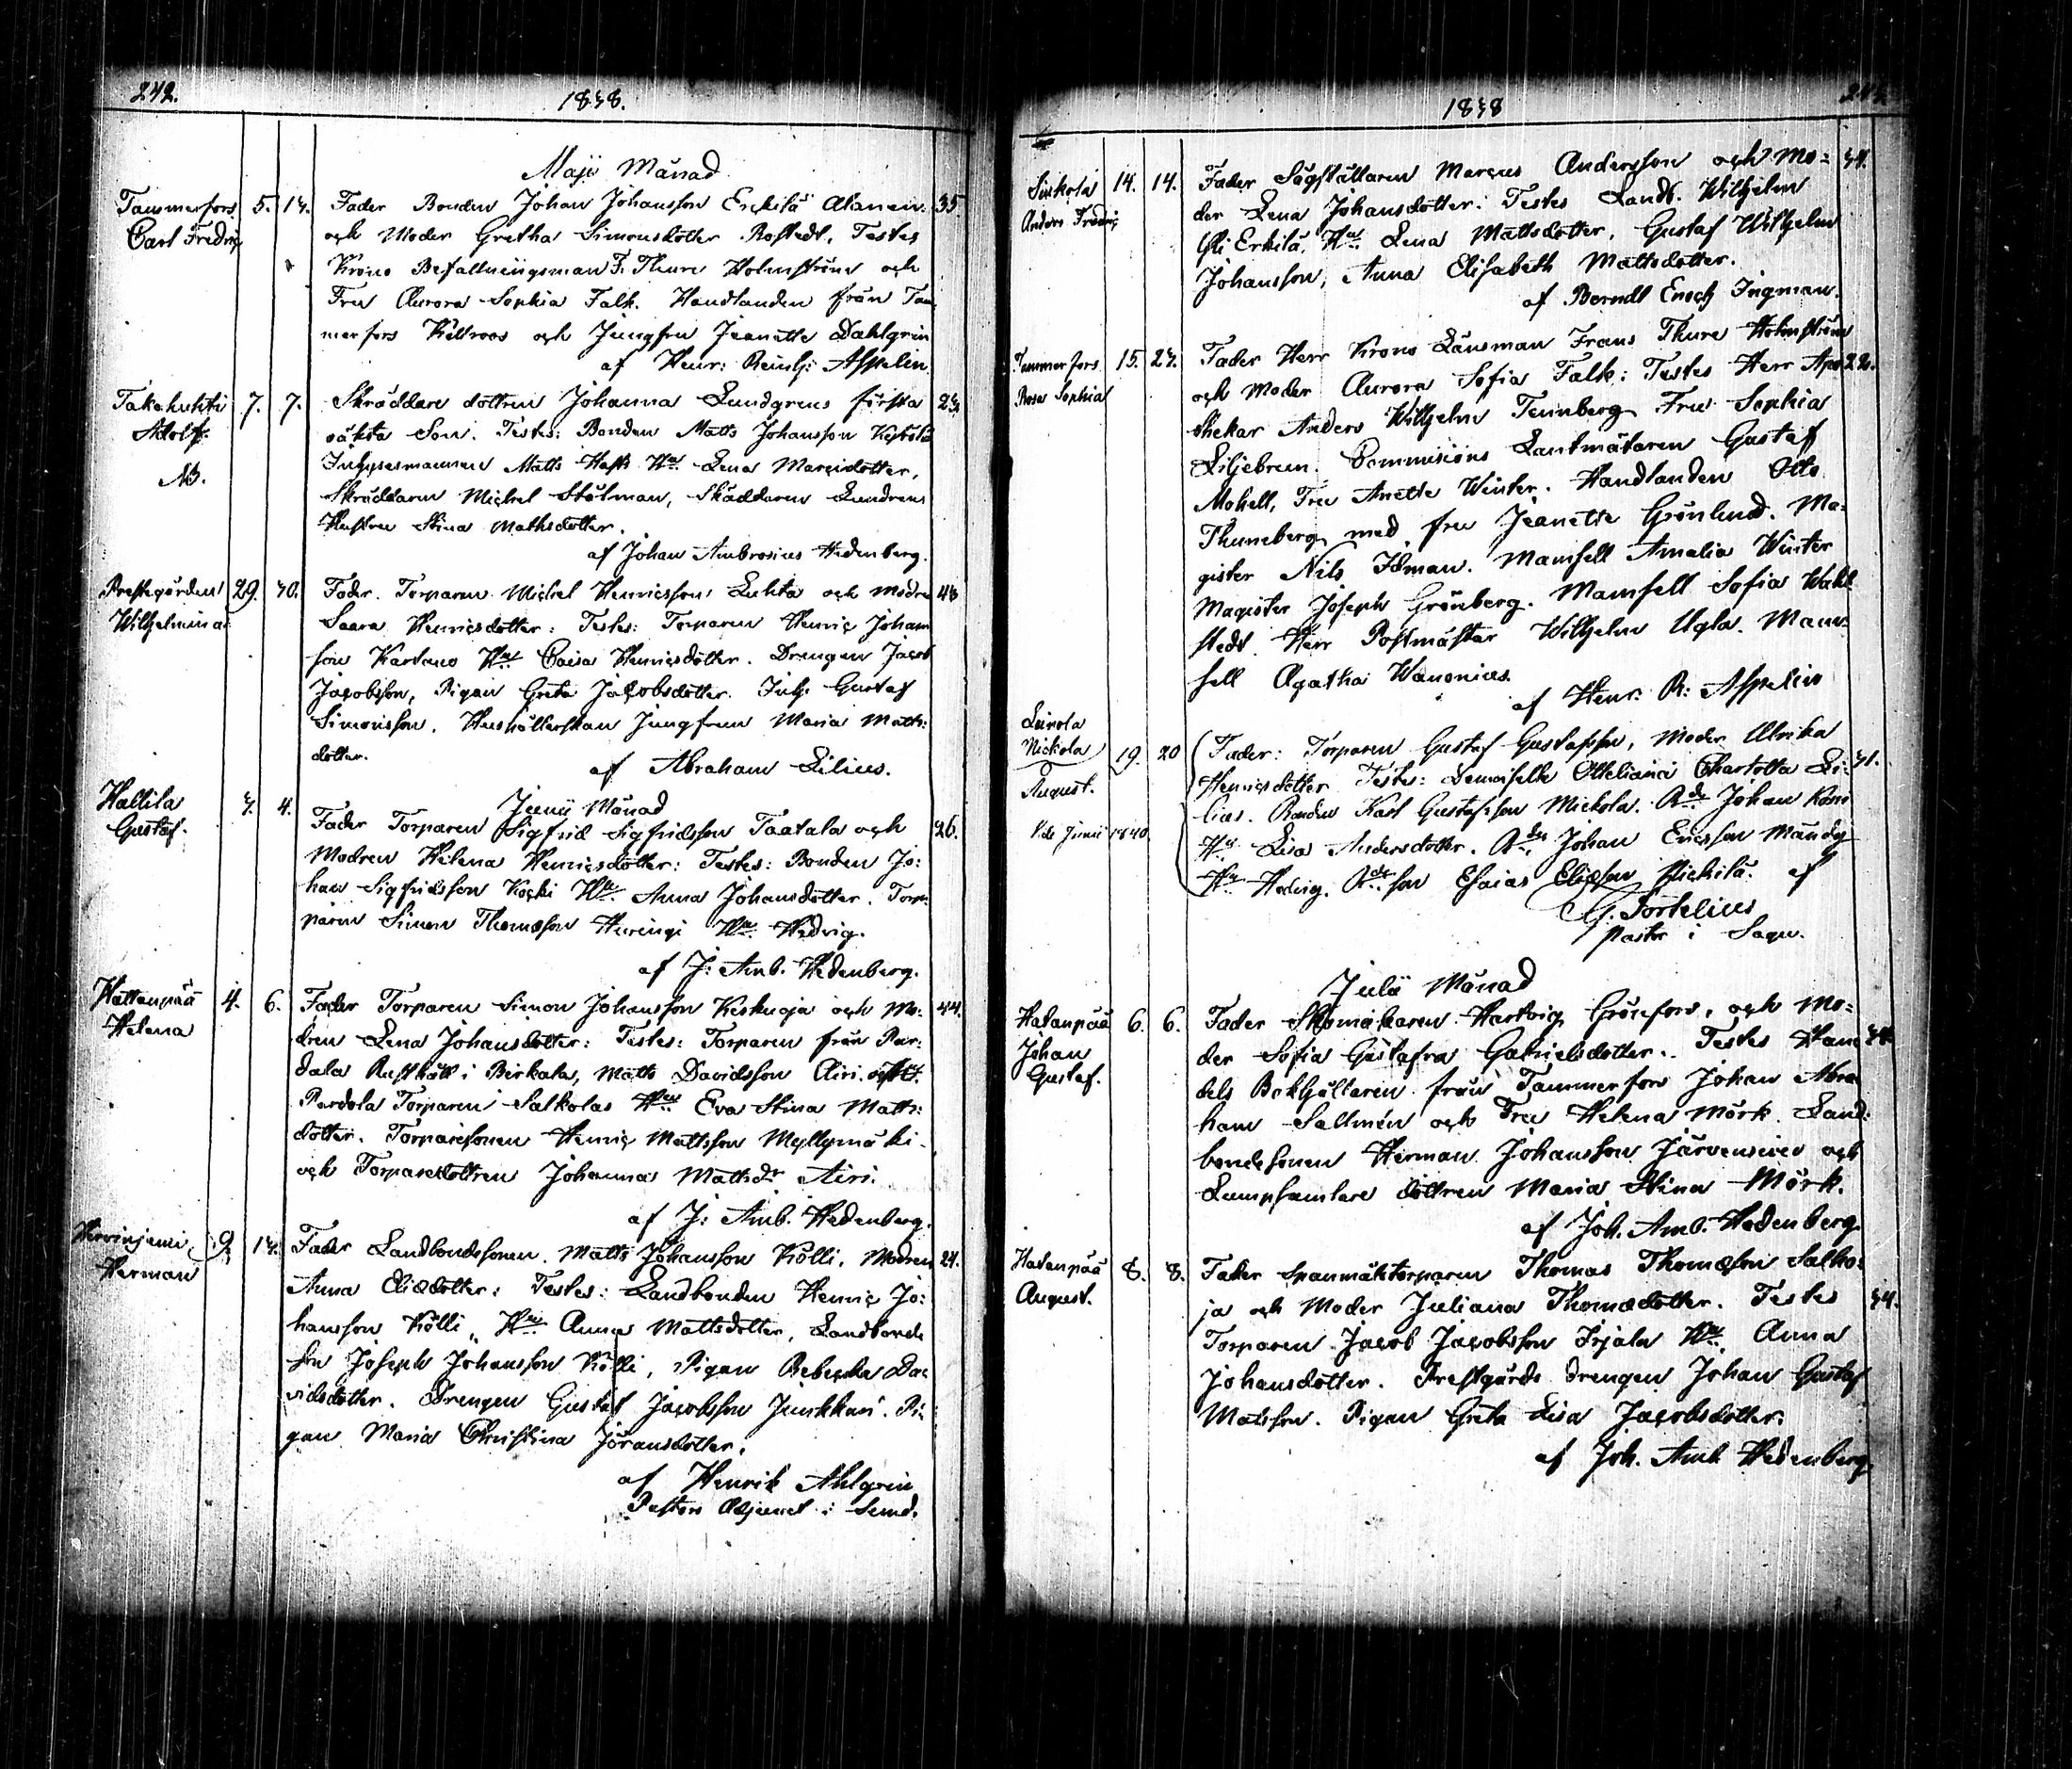 242.
1838.
Maji Månad
Tammerfors 5. 13. Fader Bonden Johan Johansson Erckilä Alanen 35
Carl Fredric och Moder Gretha Simonsdotter Rostedt, Testes
Krono Befallningsman F. Thure Holmström och
Fru Aurora Sophia Falk. Handlanden från Tam
merfors Kiellroos och Jungfru Jeanette Dahlgren
af Henr: Reinh: Appelin
Takahuhti 7. 7. Skräddare dottren Johanna Lundgrens första 23.
Adolf. oäkta Son. Testes: Bonden Matts Johansson
N. Inhysesmannen Matts Hu Lena Marcidotter,
Skräddaren Michel Stålman, Skäddaren Lundrens
Hustru Stina Mathsdotter.
af Johan Ambrosius Hedenberg.
Prestegården 29. 30. Fader Torparen Michel Henricsson Luhta och Modren 43
Wilhelmina Saara Henricsdotter: Testes: Torparen Henric Johans
son Kartano Hu Caisa Henricsdotter. Drengen Jacob
Jacobsson, Pigan Greta Jacobsdotter. Inh: Gustaf
Simonsson. Hushållerskan Jungfrun Maria Matts:
dotter.
af Abraham Lilius.
Junii Månad
Hallila 3. 4. Fader Torparen Sigfrid Sigfridsson Taatala och 26.
Gustaf. Modren Helena Henricsdotter: Testes: Bonden Jo:
han Sigfridsson Koski Hu Anna Johansdotter. Torp
paren Simon Thomasson Hu Hedvig.
af J: Amb. Hedenberg.
Hattanpää 4. 6. Fader Torparen Simon Johansson Keskuoja och Mo: 44.
Helena dren Lena Johansdotter: Testes: Torparen från Par:
dala Rusthåll i Birkala, Matts Davidsson Airi.
Pardola Torparen Salkolas Hu Eva Stina Matts:
dotter. Torparesonen Henric Mattsson Myllymäki
och Torparedottren Johanna Mattsdr Airi.
af J: Amb. Hedenberg.
Hervinjemi 9. 13. Fader Landbondesonen Matts Johansson Kölli, Modren 24.
Herman Anna Eliædotter: Testes: Landbonden Henric Jo:
hansson Kölli, Hu Anna Mattsdotter, Landbonde
Son Joseph Johansson Kölli, Pigan Rebecka Da:
vidsdotter. Drengen Gustaf Jacobsson Junkkari. Pi:
gan Maria Christina Jöransdotter.
af Henrik Ahlgren
Pastors Adjunct i
1838
Sinkola 14. 14. Fader Sågställaren Marcus Andersson och Mo: 34.
Anders Fredric der Lena Johansdotter: Testes Landb. Wilhelm
Erkilä, Hu Lena Mattsdotter, Gustaf Wilhelm
Johansson, Anna Elisabeth Mattsdotter.
af Berndt Enoch Ingman.
Tammerfors 15. 23. Fader Herr Krono Länsman Frans Thure Holmström
Rosa Sophia och Moder Aurora Sofia Falk: Testes Herr Apo 22.
thekar Anders Wilhelm Tennberg Fru Sophia
Liljebrun. Commisions Lantmätaren Gustaf
Mohell, Fru Anette Winter. Handlanden Otto
Thuneberg med fru Jeanette Grönlund. Ma:
gister Nils Idman. Mamsell Amalia Winter
Magister Joseph Grönberg. Mamsell Sofia Wahl
stedt. Herr Postmästar Wilhelm Ugla. Mam:
sell Agatha Wanonius.
af Henr: R: Appelin
Leinola
Nickola 19. 20 Fader: Torparen Gustaf Gustafsson, Moder Ulrika
August. Henricsdotter Testes: Demoiselle Otteliana Charlotta Li: 31.
lius. Bonden Karl Gustafsson Nickola. Johan
Vide Junii 1840. Hu Lisa Andersdotter. Johan Ericsson
Hu Hedvig. son Esaias Eliæson af
G. Tortelius
Pastor i
Julii Månad
Hatanpää 6. 6. Fader Skomakaren Hartvig Grönfors, och Mo:
Johan der Sofia Gustafva Gabrielsdotter. Testes Han
Gustaf. dels Bokhållaren från Tammerfors Johan Abra
ham Sallmén och Fru Helena Mörk. Land:
bondesonen Herman Johansson Järvensivu och
Lumpsamlare dottren Maria Stina Mörk.
af Joh. Amb. Hedenberg
Hatanpää 8. 8. Fader Spanmålstorparen Thomas Thomæson Salko:
August. ja och Moder Juliana Thomædotter. Testes 34.
Torparen Jacob Jacobsson Irjala Hu Anna
Johansdotter. Prestgårds drengen Johan Gustaf
Matsson. Pigan Greta Lisa Jacobsdotter.
af Joh. Amb. Hedenberg